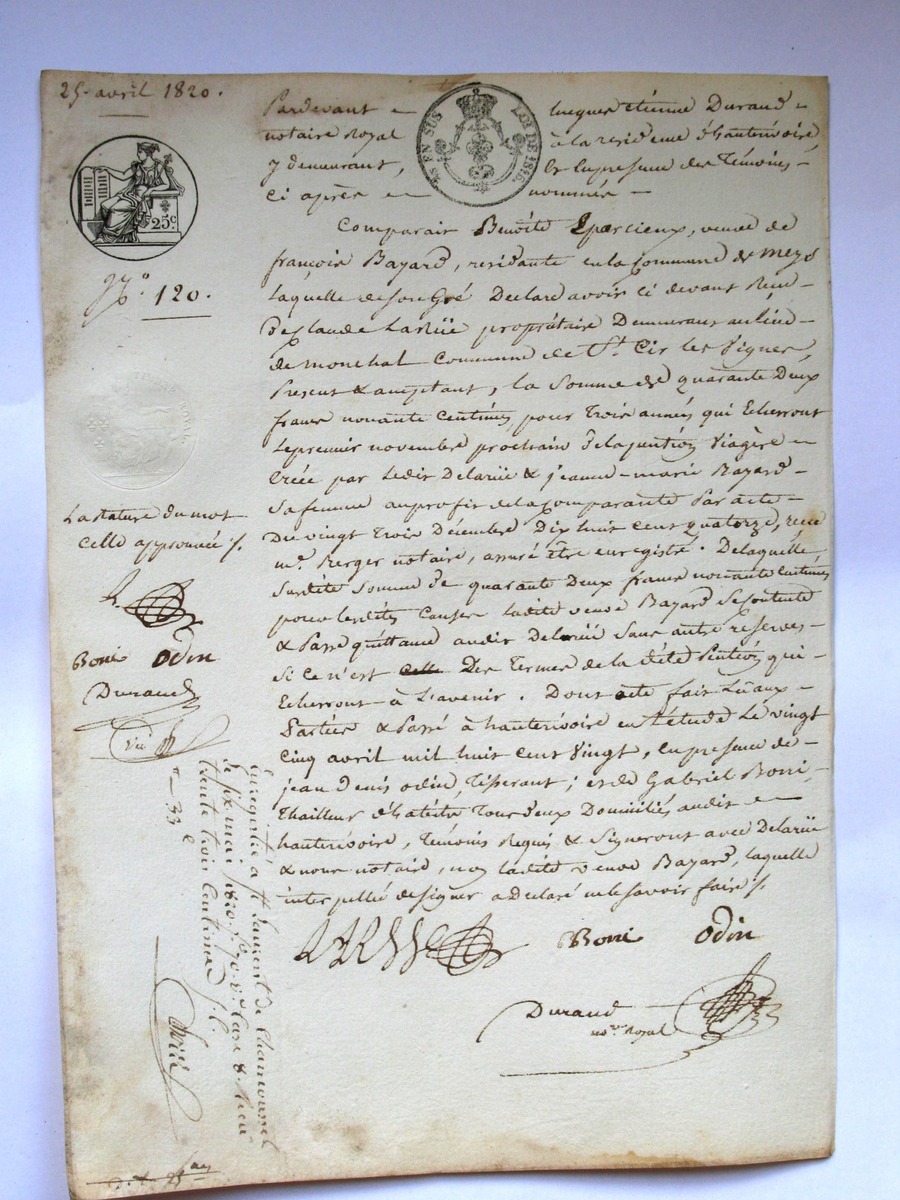 25. avril 1820.
Pardevant Lucques étienne Durand
notaire Royal à la residence d'hauterivoire,
y demeurant, & en presence des Témoins
ci après nommés
EN SUS LOI DE 1816.
25c
No. 120.
Comparait Benoîte Eparcieux, veuve de
françois Bayard, residante en la Commune de meys
Laquelle de son Gré Declare avoir ci devant Reçu
De Claude Larüe propriétaire Demeurant au lieu
de monchal Commune de St. Cir les Vignes,
Present & acceptant, la Somme de quarante Deux
francs nonante Centimes, pour Trois années qui Echerront
Le premier novembre prochain de la pention Viagère
Créée par Ledit Delarüe & jeanne-marie Bayard
Sa femme au profit de la Comparante Par acte
Du vingt Trois Décembre Dix huit cent quatorze, reçu
me. Berger notaire, assuré être enregistré. De laquelle
Susdite Somme de quarante Deux francs nonante Centimes
pour lesdites Causes Ladite veuve Bayard Se Contente
& Passe quittance audit Delarüe Sans autre reserves
Si ce n'est Celle Des Termes de la dite Pention qui
Echerront à L'avenir. Dont acte fait Lu aux
Parties & Passé à hauterivoire en L'étude Le vingt
Cinq avril mil huit cent vingt, en presence de
jean Denis odin, Tisserant; et de Gabriel Boni,
Thailleur d'habits Tous Deux Domiciliés audit
hauterivoire, Témoins Requis & Signeront avec Delarüe
& nous notaire, non ladite veuve Bayard, laquelle
interpellée de signer a Declaré ne le savoir faire /.
La Rature du mot
Celle approuvée /.
Boni Odin
Durand
Boni Odin
Durand
nore. Royal
Enregistré à St Laurent de Chamousset
le six mai 1820. fo. 70. vo. Case 8. Reçu
trente trois Centimes
33 c